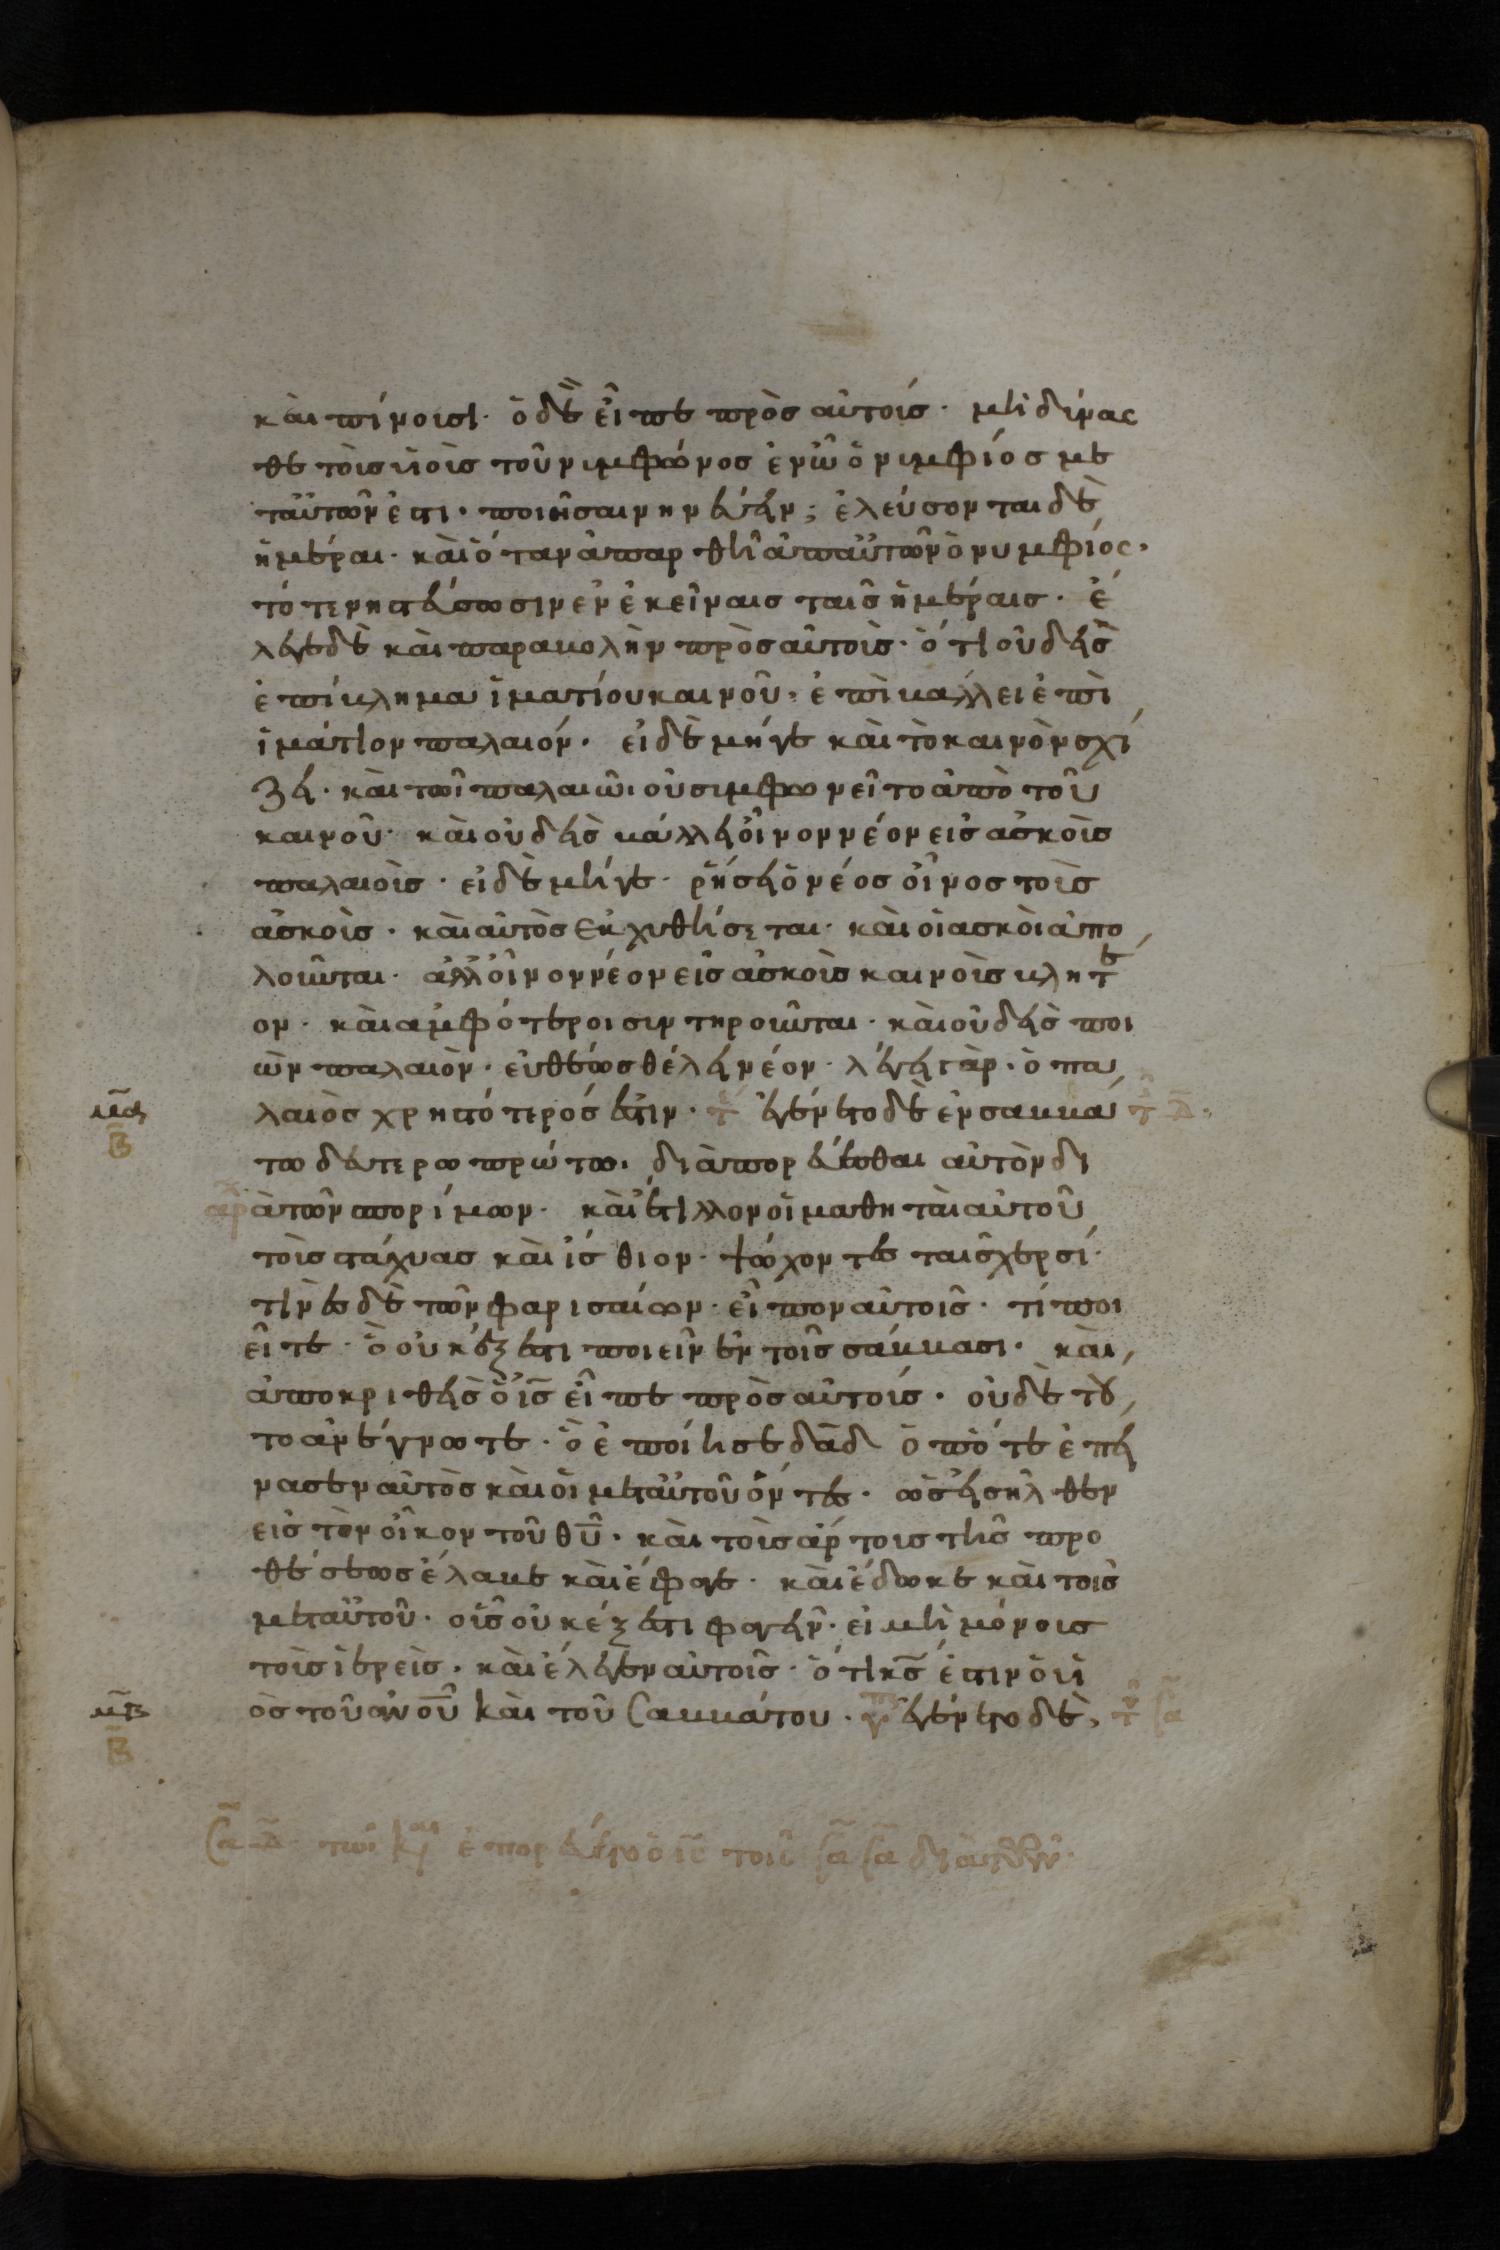 κὰι πίνοισι· ὁ δὲ εἶπε πρὸσ αὐτοίσ· μὴ δίνας
θε τὸισ ὑιὸισ τοῦ νιμφώνοσ ἐν ὧ ὁ νιμφίόσ με
τ αὐτῶν ἐστι· ποιῆσαι νηστεύειν; ἐλεύσονται δὲ
ἡμέραι· κὰι ὅταν ἀπαρθῆ ἀπ αὐτῶν ὁ νυμφίός,
τότε νηστεύσωσιν ἐν ἐκείναισ ταῖσ ἡμέραισ· ἔ
λεγε δὲ κὰι παραβολὴν πρὸσ αὐτοὶσ· ὅτι οὐδεὶσ
ἐπίβλημα ἱματίου καινοῦ, ἐπιβάλλει ἐπὶ
ἱμάτιον παλαιόν· εἰ δὲ μήγε κὰι τὸ καινὸν σχί
ζει· κὰι τῶι παλαιῶι οὐ σιμφωνεῖ το ἀπὸ τοῦ
καινοῦ· κὰι οὐδεὶσ βάλλει οἶνον νέον εἰσ ἀσκοὶσ
παλαιοὶσ· εἰ δὲ μήγε· ῥήσει ὁ νέοσ οἶνοσ τοὶσ
ἀσκοὶσ· κὰι αὐτὸσ ἐκχυθήσεται· κὰι οἱ ασκὸι ἀπο
λοῦνται· ἀλλ οἶνον νέον εἰσ ἀσκοὶσ καινοὶσ βλητέ
ον· κὰι αμφότεροι σιντηροῦνται· κὰι οὐδεὶσ πι
ὼν παλαιὸν· ευθέωσ θέλει νέον· λέγει γὰρ· ὁ πα
λαιὸσ χρηστότερόσ ἐστιν· ἐγένετο δὲ ἐν σαββά
τω δευτερω πρώτω· διαπορεύεσθαι αὐτὸν δι
ὰ τῶν σπορίμων· κὰι ἔτιλλον οἱ μαθηταὶ αὐτοῦ
τὸισ στάχυασ κὰι ἰσθιον· ψώχοντεσ ταῖσ χερσί·
τινὲσ δὲ τῶν φαρισαίων· εἶπον αὐτοῖσ· τί ποι
εῖτε· ὃ οὐκ ἔξεστι ποιεῖν ἐν τοῖσ σάββασι· κὰι
ἀποκριθεὶσ ὁ ισ εἶπε πρὸσ αὐτοίσ· οὐδὲ τοῦ
το ανέγνωτε· ὃ ἐποίησε δαδ ὁπότε ἐπεί
νασεν αὐτὸσ κὰι ὁι μετ αὐτοῦ ὄντεσ· ὡσ εἰσῆλθεν
εἰσ τὸν οἶκον τοῦ θυ· κὰι τοὶσ ἄρτοισ τῆσ προ
θέσεωσ ἔλαβε κὰι ἔφαγε· κὰι ἔδωκε κὰι τοῖσ
μετ αὐτοῦ· οἷσ οὐκ έξεστι φαγεῖν· εἰ μὴ μόνοισ
τοὶσ ἱερεὶσ· κὰι ἔλεγεν αὐτοῖσ· ὅτι κσ ἐστιν ὁ ὑι
ὸσ τοῦ ανου κὰι τοῦ Σαββάτου· ἐγένετο δὲ,
μα
β
μβ
β
ἐπορεύετο ὁ ισ τοῖσ